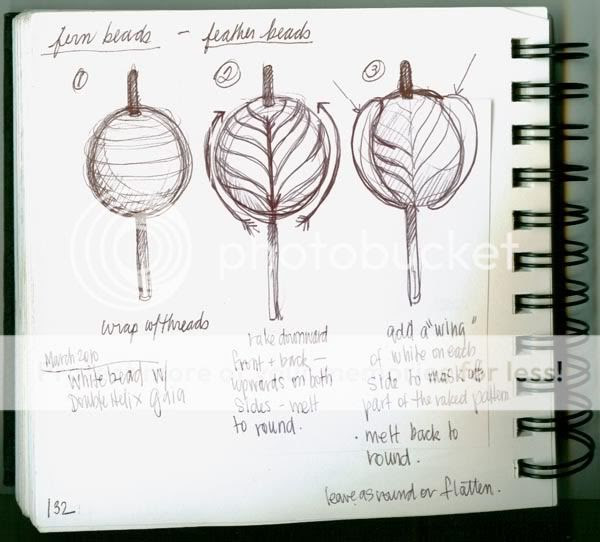 fern beads - feather beads
① ② ③
wrap w/threads
March 2010
white bead w/
Double Helix gaia
rake downward
front + back -
upwards on both
sides - melt
to round.
add a "wing"
of white on each
side to mask off
part of the raked pattern
• melt back to
round.
leave as round or flatten.
132
photobucket